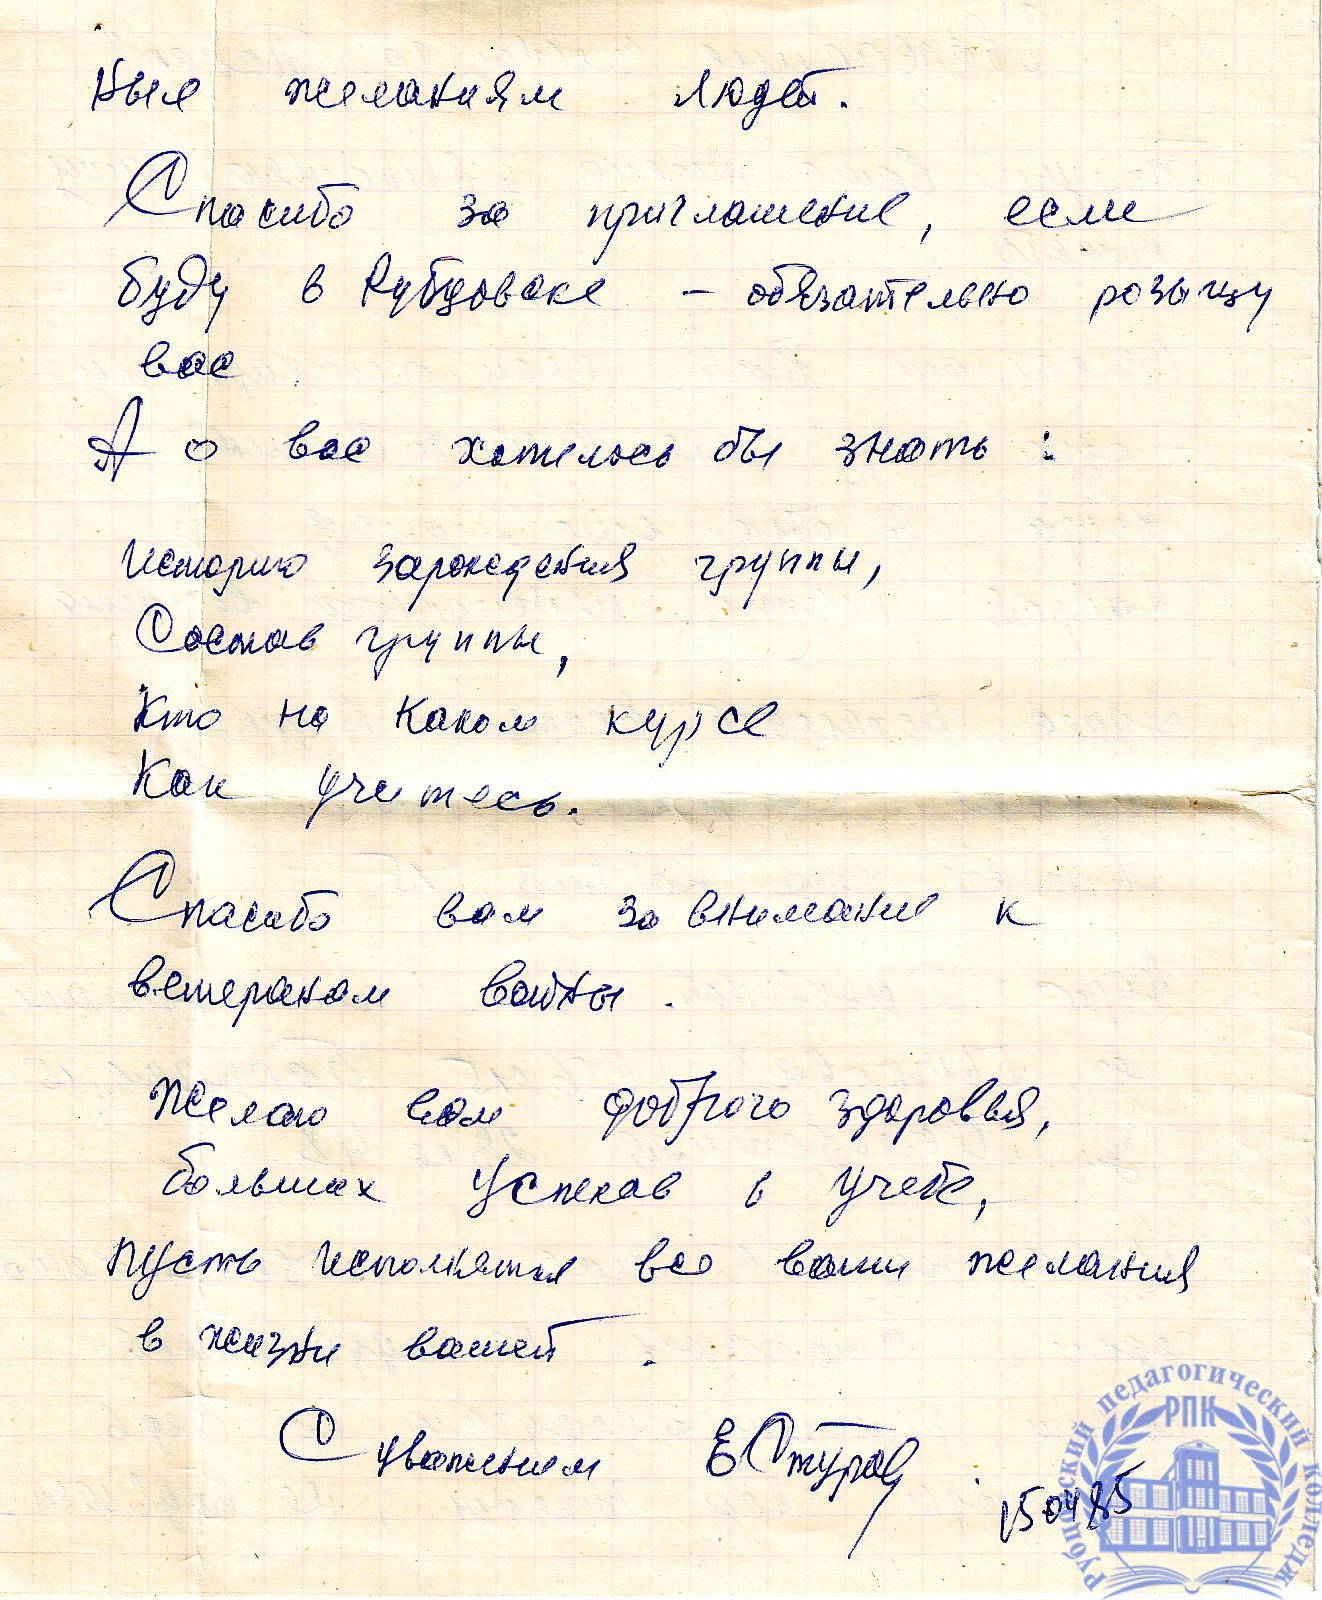 ные желаниям людей.
Спасибо за приглашение, если
буду в Рубцовске - обязательно розыщу
вас
А о вас хотелось бы знать:
Историю зарождения группы,
Состав группы,
Кто на каком курсе
Как учитесь.
Спасибо вам за внимание к
ветеранам войны.
Желаю вам доброго здоровья,
больших успехов в учебе,
пусть исполнятся все ваши желания
в жизни вашей.
С уважением Е Стуров
150485
Рубцовский педагогический колледж
РПК